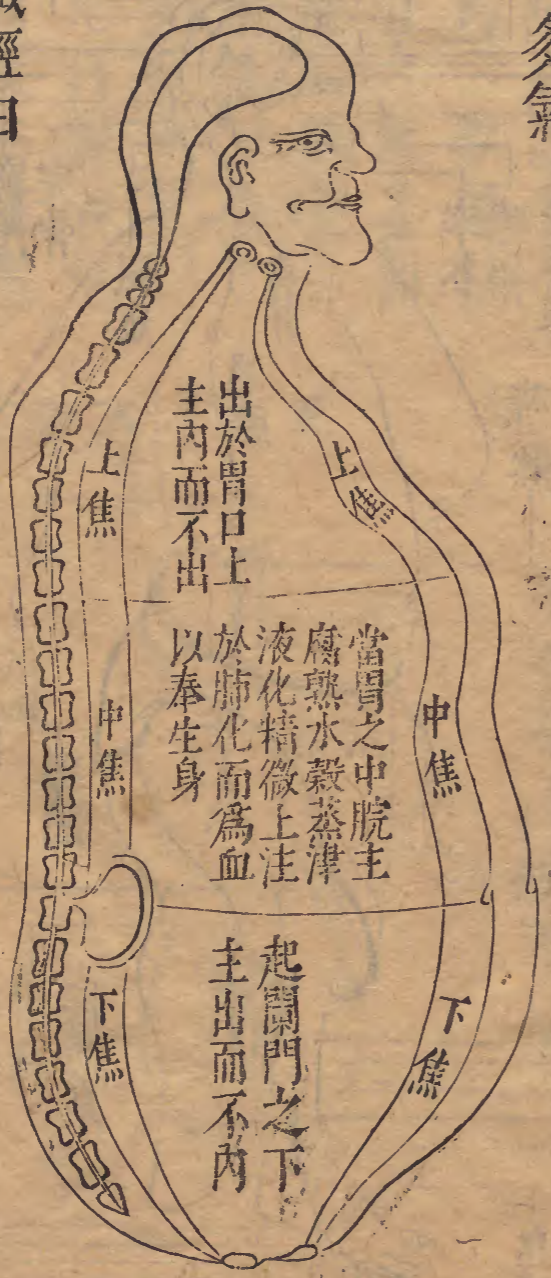 多氣
上焦
出於胃口上
主內而不出
上焦
中焦
當胃之中脘主
腐熟水穀蒸津
液化精微上注
於肺化而爲血
以奉生身
中焦
下焦
起闌門之下
主出而不內
下焦
經曰